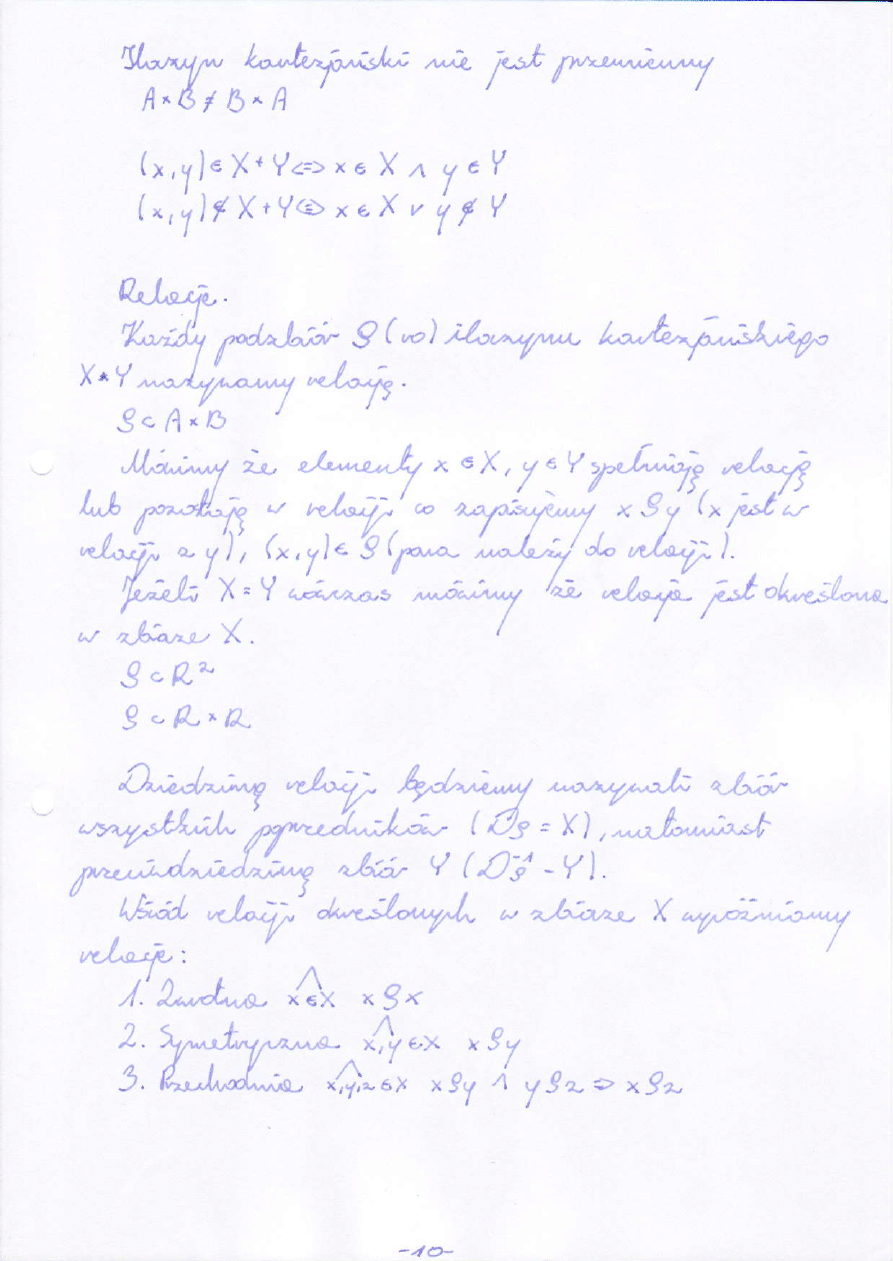 Iloczyn kartezjański nie jest przemienny
A × B ≠ B × A
(x,y) ∈ X + Y <=> x ∈ X ∧ y ∈ Y
(x,y) ∉ X + Y <=> x ∈ X ∨ y ∉ Y
Relacje.
Każdy podzbiór ρ (ro) iloczynu kartezjańskiego
X * Y nazywamy relacją.
ρ ⊂ A × B
Mówimy że elementy x ∈ X, y ∈ Y spełniają relację
lub pozostają w relacji co zapisujemy x ρ y (x jest w
relacji z y), (x,y) ∈ ρ (para należy do relacji).
Jeżeli X = Y wówczas mówimy że relacja jest określona
w zbiorze X.
ρ ⊂ R²
ρ ⊂ R × R
Dziedziną relacji będziemy nazywali zbiór
wszystkich poprzedników (Dρ = X), natomiast
przeciwdziedziną zbiór Y (Dρ⁻¹ - Y).
Wśród relacji określonych w zbiorze X wyróżniamy
relacje:
1. Zwrotna ⋀ x ∈ X x ρ x
2. Symetryczna ⋀ x,y ∈ X x ρ y
3. Przechodnia ⋀ x,y,z ∈ X x ρ y ∧ y ρ z => x ρ z
-10-